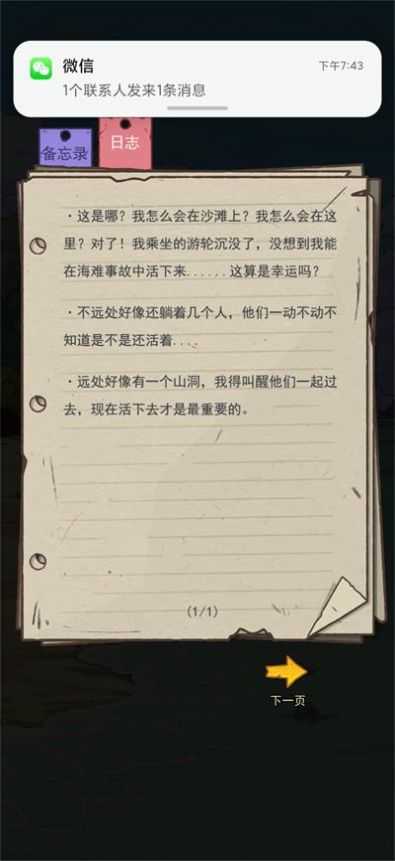 微信
下午7:43
1个联系人发来1条消息
备忘录
日志
·这是哪？我怎么会在沙滩上？我怎么会在这
里？对了！我乘坐的游轮沉没了，没想到我能
在海难事故中活下来......这算是幸运吗？
·不远处好像还躺着几个人，他们一动不动不
知道是不是还活着....
·远处好像有一个山洞，我得叫醒他们一起过
去，现在活下去才是最重要的。
(1/1)
下一页